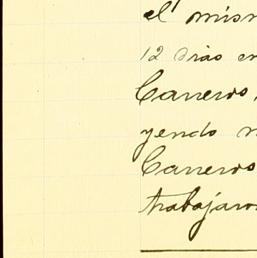 el mism
12 dias en
Carreros,
yendo
Carreros
trabajaro